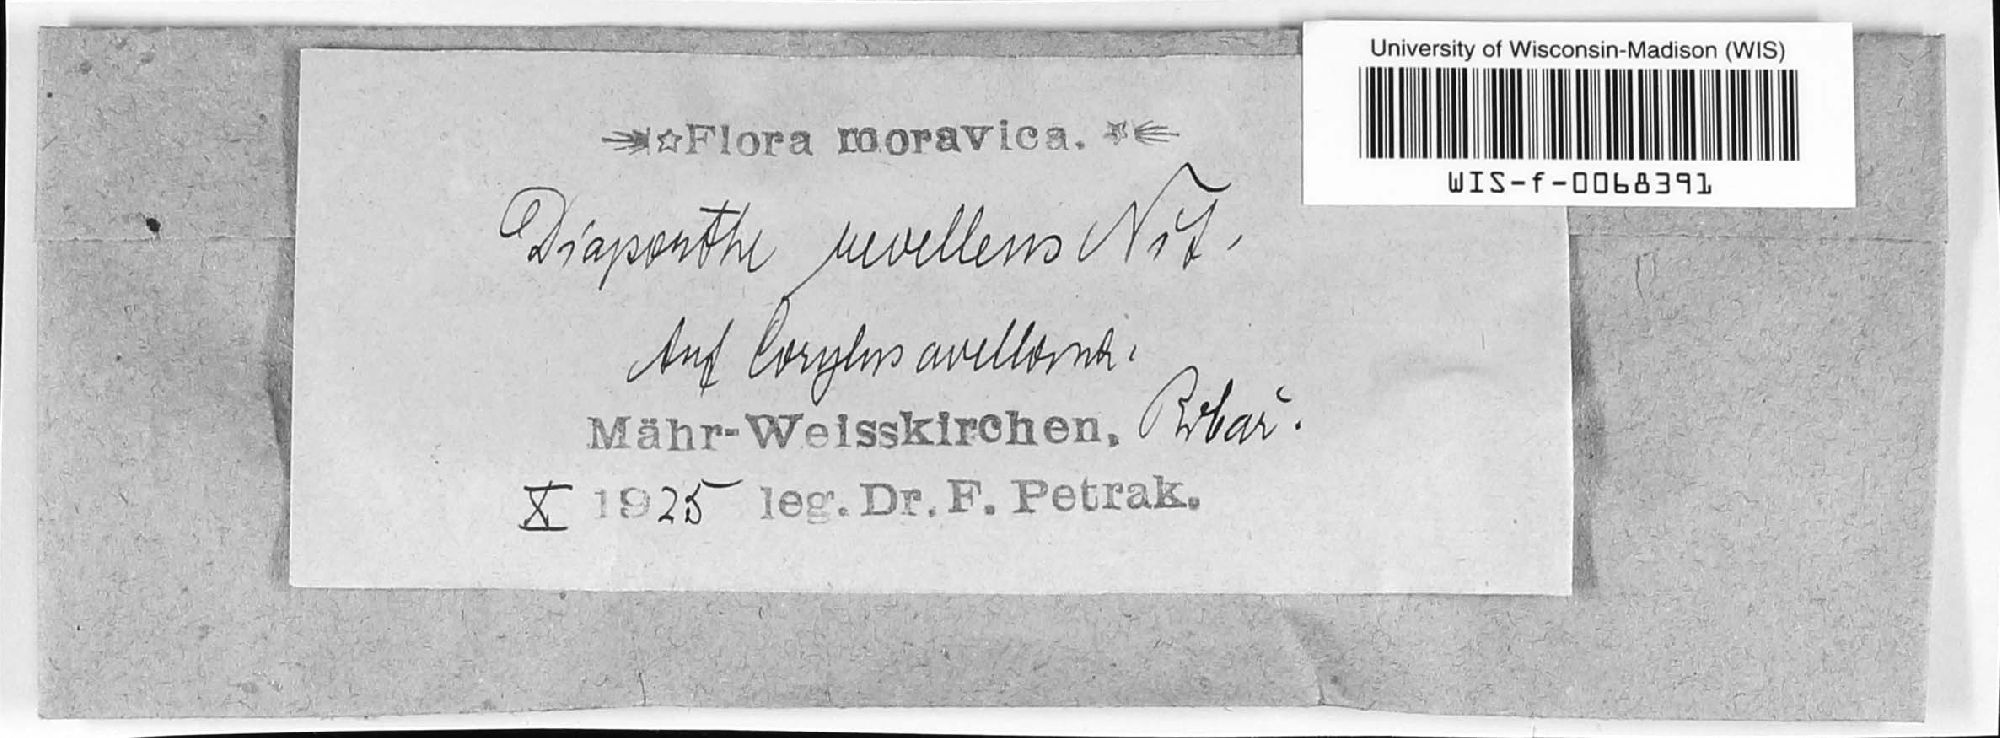 University of Wisconsin-Madison (WIS)
WIS-f-0068391
Flora moravica.
Diaporthe revellens Nit.
Auf Corylus avellana.
Mähr-Weisskirchen, Ribař.
X 1925 leg. Dr. F. Petrak.